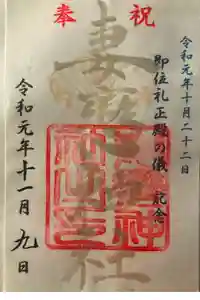 奉祝
令和元年十月二十二日
即位礼正殿の儀 記念
妻 神社
令和元年十一月九日